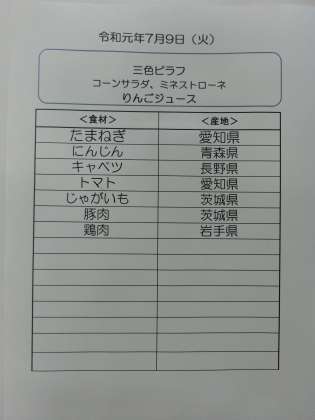 令和元年7月9日（火）
三色ピラフ
コーンサラダ、ミネストローネ
りんごジュース
＜食材＞ ＜産地＞
たまねぎ 愛知県
にんじん 青森県
キャベツ 長野県
トマト 愛知県
じゃがいも 茨城県
豚肉 茨城県
鶏肉 岩手県